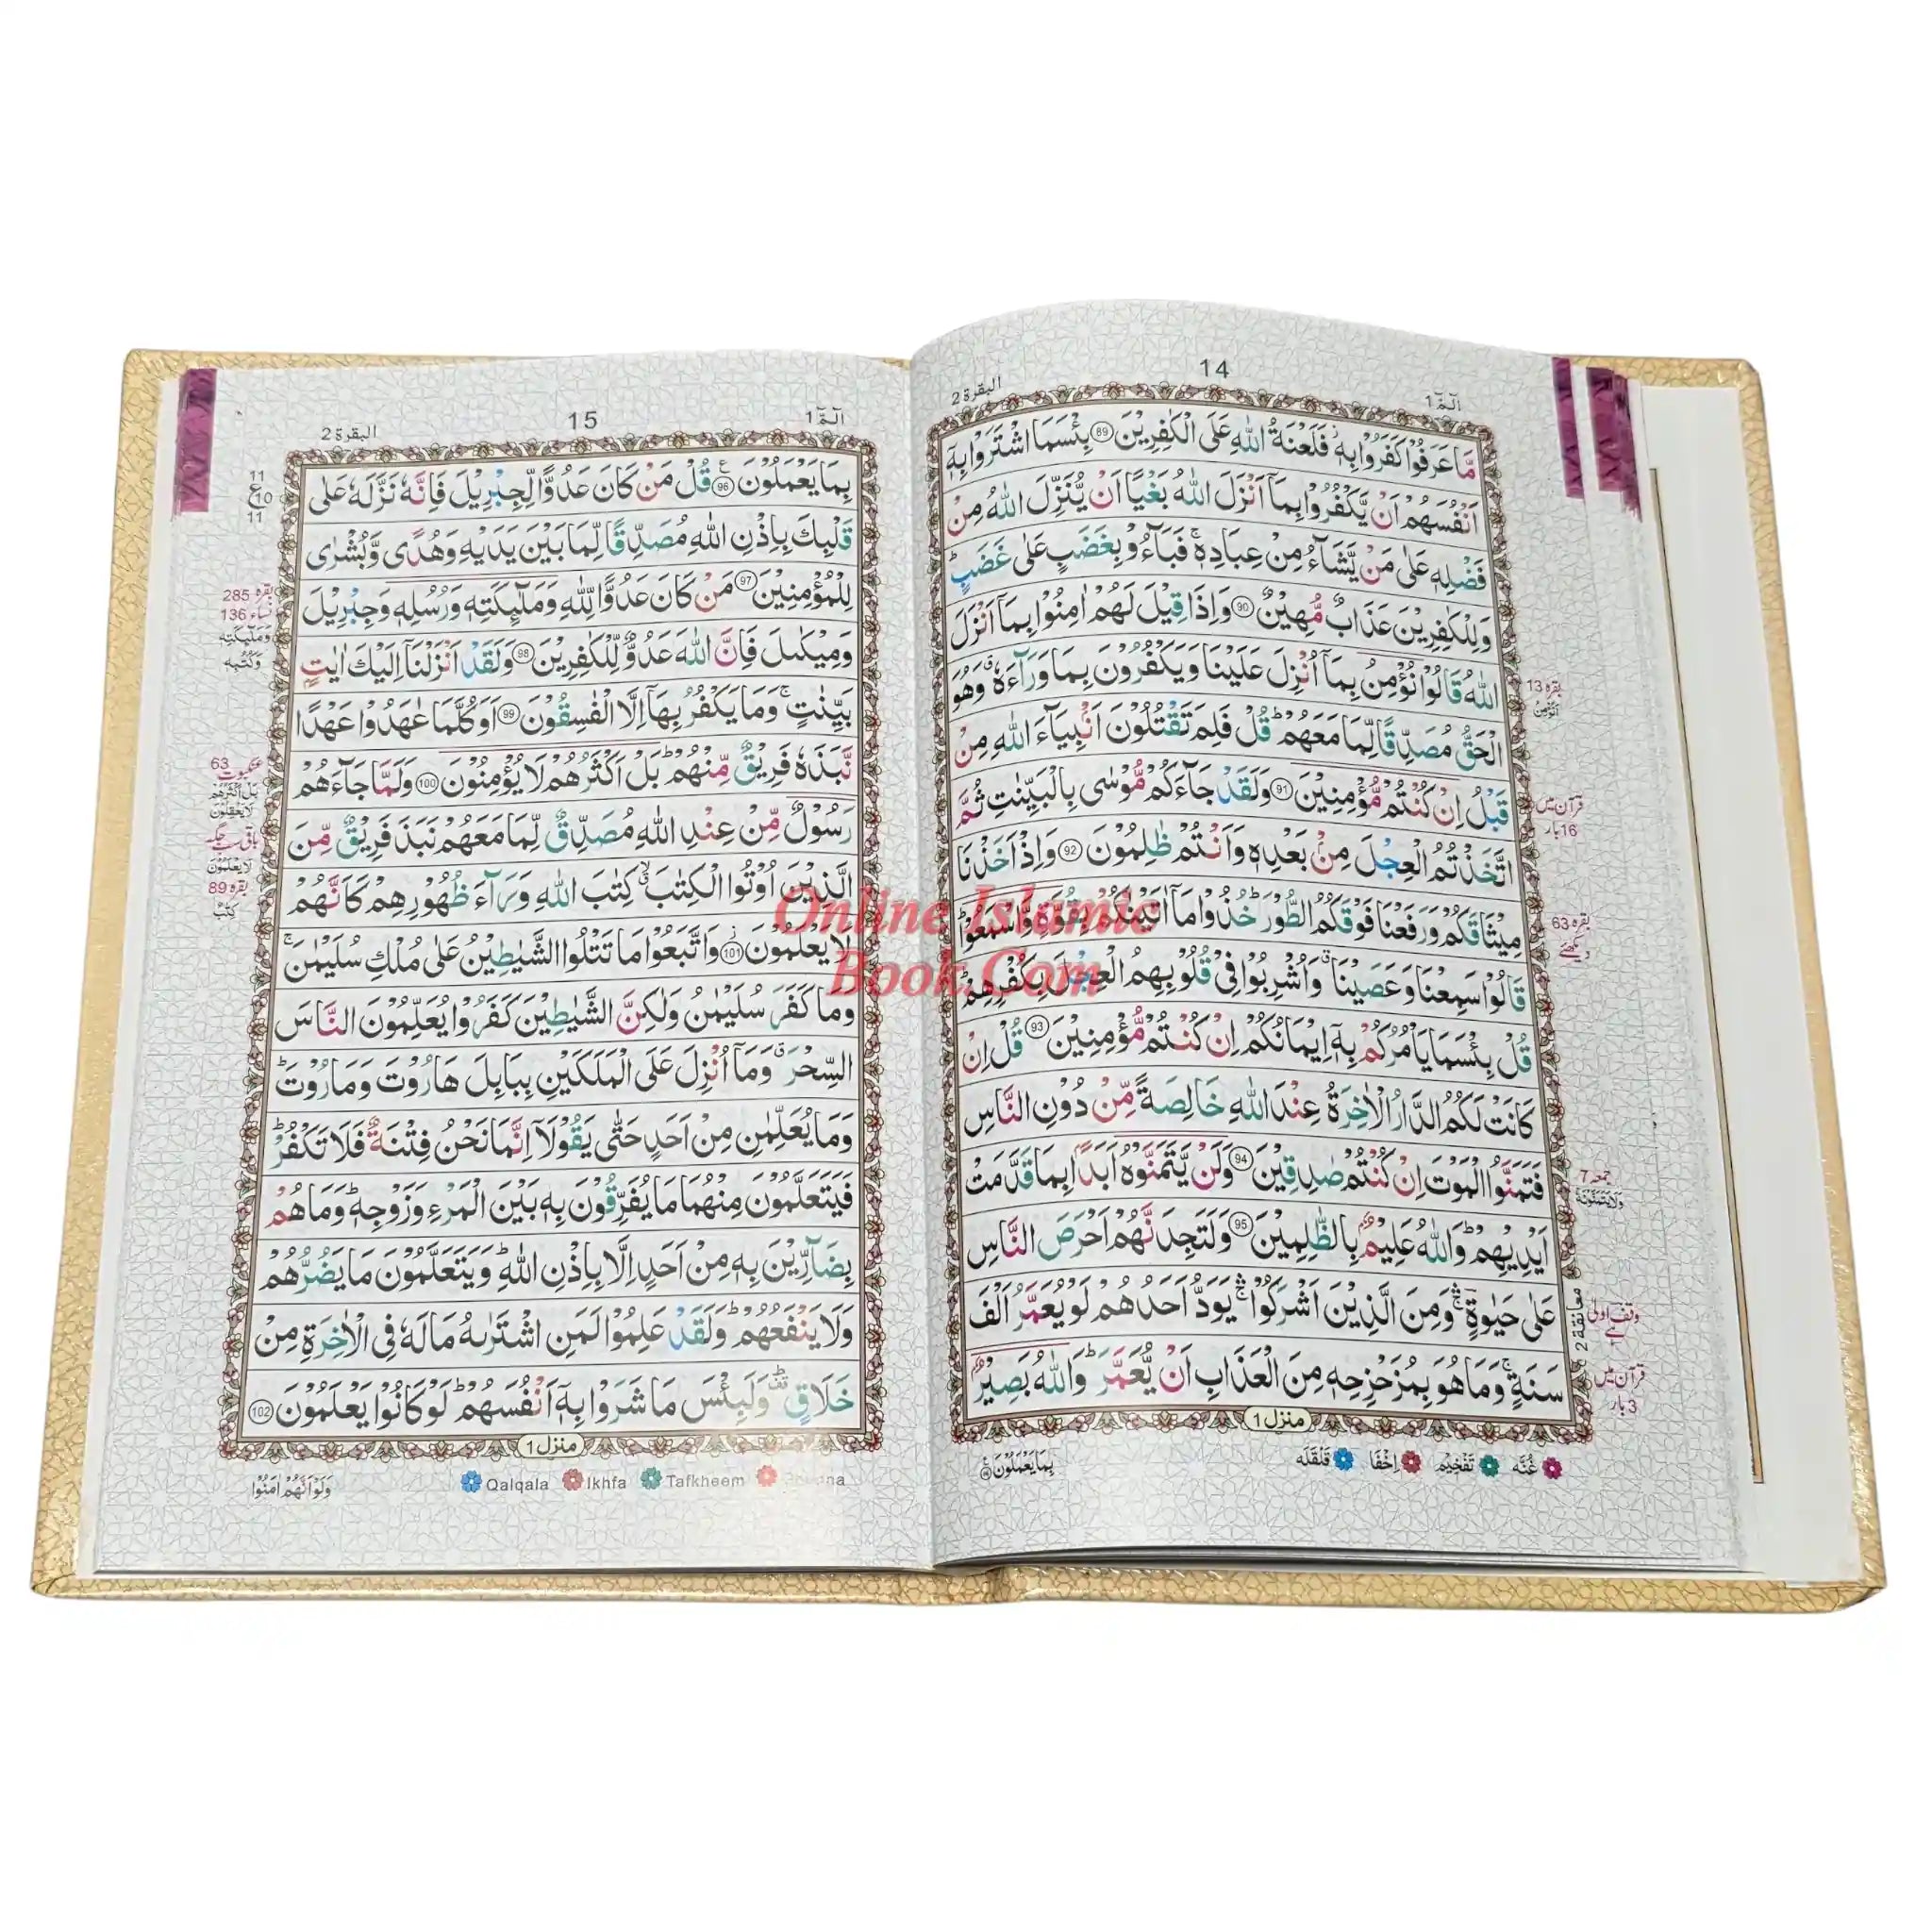 البقرة 2
14
الٓمّٓ 1
مَّا عَرَفُوْا كَفَرُوْا بِهٖ ؗ فَلَعْنَةُ اللّٰهِ عَلَى الْكٰفِرِيْنَ 89 بِئْسَمَا اشْتَرَوْا بِهٖۤ
اَنْفُسَهُمْ اَنْ يَّكْفُرُوْا بِمَاۤ اَنْزَلَ اللّٰهُ بَغْيًا اَنْ يُّنَزِّلَ اللّٰهُ مِنْ
فَضْلِهٖ عَلٰى مَنْ يَّشَآءُ مِنْ عِبَادِهٖ ۚ فَبَآءُوْ بِغَضَبٍ عَلٰى غَضَبٍ ؕ
وَلِلْكٰفِرِيْنَ عَذَابٌ مُّهِيْنٌ 90 وَاِذَا قِيْلَ لَهُمْ اٰمِنُوْا بِمَاۤ اَنْزَلَ
اللّٰهُ قَالُوْا نُؤْمِنُ بِمَاۤ اُنْزِلَ عَلَيْنَا وَيَكْفُرُوْنَ بِمَا وَرَآءَهٗ ۗ وَهُوَ
الْحَقُّ مُصَدِّقًا لِّمَا مَعَهُمْ ؕ قُلْ فَلِمَ تَقْتُلُوْنَ اَنْۢبِيَآءَ اللّٰهِ مِنْ
قَبْلُ اِنْ كُنْتُمْ مُّؤْمِنِيْنَ 91 وَلَقَدْ جَآءَكُمْ مُّوْسٰى بِالْبَيِّنٰتِ ثُمَّ
اتَّخَذْتُمُ الْعِجْلَ مِنْۢ بَعْدِهٖ وَاَنْتُمْ ظٰلِمُوْنَ 92 وَاِذْ اَخَذْنَا
مِيْثَاقَكُمْ وَرَفَعْنَا فَوْقَكُمُ الطُّوْرَ ؕ خُذُوْا مَاۤ اٰتَيْنٰكُمْ بِقُوَّةٍ وَّاسْمَعُوْا ؕ
قَالُوْا سَمِعْنَا وَعَصَيْنَا ۗ وَاُشْرِبُوْا فِيْ قُلُوْبِهِمُ الْعِجْلَ بِكُفْرِهِمْ ؕ
قُلْ بِئْسَمَا يَاْمُرُكُمْ بِهٖۤ اِيْمَانُكُمْ اِنْ كُنْتُمْ مُّؤْمِنِيْنَ 93 قُلْ اِنْ
كَانَتْ لَكُمُ الدَّارُ الْاٰخِرَةُ عِنْدَ اللّٰهِ خَالِصَةً مِّنْ دُوْنِ النَّاسِ
فَتَمَنَّوُا الْمَوْتَ اِنْ كُنْتُمْ صٰدِقِيْنَ 94 وَلَنْ يَّتَمَنَّوْهُ اَبَدًۢا بِمَا قَدَّمَتْ
اَيْدِيْهِمْ ؕ وَاللّٰهُ عَلِيْمٌۢ بِالظّٰلِمِيْنَ 95 وَلَتَجِدَنَّهُمْ اَحْرَصَ النَّاسِ
عَلٰى حَيٰوةٍ ۛۚ وَمِنَ الَّذِيْنَ اَشْرَكُوْا ۛۚ يَوَدُّ اَحَدُهُمْ لَوْ يُعَمَّرُ اَلْفَ
سَنَةٍ ۚ وَمَا هُوَ بِمُزَحْزِحِهٖ مِنَ الْعَذَابِ اَنْ يُّعَمَّرَ ؕ وَاللّٰهُ بَصِيْرٌۢ
منزل 1
غُنَّه تَفْخِيْم اِخْفَا قَلْقَلَه
بِمَا يَعْمَلُوْنَ
بقرہ 13
قرآن میں
16 بار
بقرہ 63
دیکھئے
جمعہ 7
معانقة 2
وقف اولی
ہے
قرآن میں
3 بار
البقرة 2
15
الٓمّٓ 1
بِمَا يَعْمَلُوْنَ 96 قُلْ مَنْ كَانَ عَدُوًّا لِّجِبْرِيْلَ فَاِنَّهٗ نَزَّلَهٗ عَلٰى
قَلْبِكَ بِاِذْنِ اللّٰهِ مُصَدِّقًا لِّمَا بَيْنَ يَدَيْهِ وَهُدًى وَّبُشْرٰى
لِلْمُؤْمِنِيْنَ 97 مَنْ كَانَ عَدُوًّا لِّلّٰهِ وَمَلٰٓئِكَتِهٖ وَرُسُلِهٖ وَجِبْرِيْلَ
وَمِيْكٰىلَ فَاِنَّ اللّٰهَ عَدُوٌّ لِّلْكٰفِرِيْنَ 98 وَلَقَدْ اَنْزَلْنَاۤ اِلَيْكَ اٰيٰتٍۭ
بَيِّنٰتٍ ۚ وَمَا يَكْفُرُ بِهَاۤ اِلَّا الْفٰسِقُوْنَ 99 اَوَكُلَّمَا عٰهَدُوْا عَهْدًا
نَّبَذَهٗ فَرِيْقٌ مِّنْهُمْ ؕ بَلْ اَكْثَرُهُمْ لَا يُؤْمِنُوْنَ 100 وَلَمَّا جَآءَهُمْ
رَسُوْلٌ مِّنْ عِنْدِ اللّٰهِ مُصَدِّقٌ لِّمَا مَعَهُمْ نَبَذَ فَرِيْقٌ مِّنَ
الَّذِيْنَ اُوْتُوا الْكِتٰبَ ۙ كِتٰبَ اللّٰهِ وَرَآءَ ظُهُوْرِهِمْ كَاَنَّهُمْ
لَا يَعْلَمُوْنَ 101 وَاتَّبَعُوْا مَا تَتْلُوا الشَّيٰطِيْنُ عَلٰى مُلْكِ سُلَيْمٰنَ ۚ
وَمَا كَفَرَ سُلَيْمٰنُ وَلٰكِنَّ الشَّيٰطِيْنَ كَفَرُوْا يُعَلِّمُوْنَ النَّاسَ
السِّحْرَ ۗ وَمَاۤ اُنْزِلَ عَلَى الْمَلَكَيْنِ بِبَابِلَ هَارُوْتَ وَمَارُوْتَ ؕ
وَمَا يُعَلِّمٰنِ مِنْ اَحَدٍ حَتّٰى يَقُوْلَاۤ اِنَّمَا نَحْنُ فِتْنَةٌ فَلَا تَكْفُرْ ؕ
فَيَتَعَلَّمُوْنَ مِنْهُمَا مَا يُفَرِّقُوْنَ بِهٖ بَيْنَ الْمَرْءِ وَزَوْجِهٖ ؕ وَمَا هُمْ
بِضَآرِّيْنَ بِهٖ مِنْ اَحَدٍ اِلَّا بِاِذْنِ اللّٰهِ ؕ وَيَتَعَلَّمُوْنَ مَا يَضُرُّهُمْ
وَلَا يَنْفَعُهُمْ ؕ وَلَقَدْ عَلِمُوْا لَمَنِ اشْتَرٰىهُ مَا لَهٗ فِي الْاٰخِرَةِ مِنْ
خَلَاقٍ ۛؕ وَلَبِئْسَ مَا شَرَوْا بِهٖۤ اَنْفُسَهُمْ ؕ لَوْ كَانُوْا يَعْلَمُوْنَ 102
منزل 1
Qalqala Ikhfa Tafkheem
وَلَوْ اَنَّهُمْ اٰمَنُوْا
11
ع 10
11
بقرہ 285
نساء 136
وَمَلٰٓئِكَتِهٖ
وَكُتُبِهٖ
عنکبوت 63
بَلْ اَكْثَرُهُمْ
لَا يَعْقِلُوْنَ
باقی سب جگہ
لَا يَعْلَمُوْنَ
بقرہ 89
كِتٰبٌ
Online Islamic
Book.Com